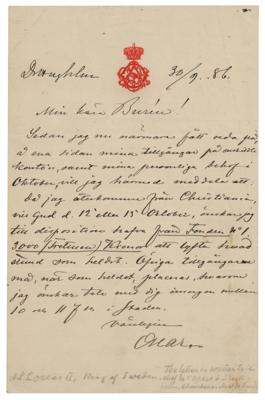 30/9. 86.
Min kära Burén!
Sedan jag nu närmare fått reda på,
å ena sidan mina tillgångar på
konton, samt mina personliga behof i
Oktober, vill jag härmed meddela att
då jag återkommer från Christiania,
vill Gud d. 12 eller 15 Oktober, önskar jag
till disposition hafva från Fonden No 1
3000 (Tretusen) Kronor att lyfta
stund som heldst. Öfriga tillgångarna
må, när som heldst, placeras, hvarom
jag önskar tala med dig imorgon mellan
10 och 11 f m i staden.
Vänligen
Oscar
King of Sweden
The letter is written to